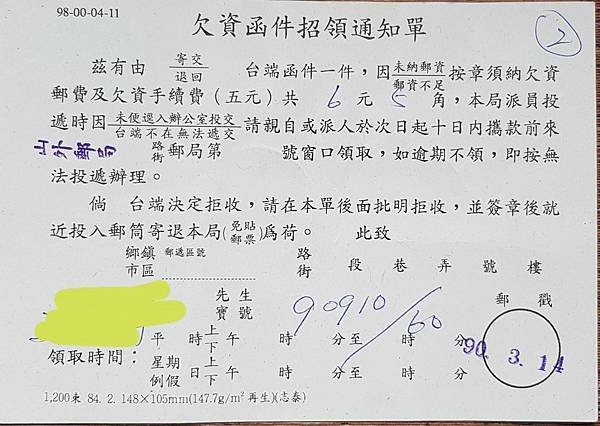 98-00-04-11
欠資函件招領通知單
2
茲有由 寄交 退回 台端函件一件，因 未納郵資 郵資不足 按章須納欠資
郵費及欠資手續費（五元）共 6 元 5 角，本局派員投
遞時因 未便退入辦公室投交 台端不在無法遞交 請親自或派人於次日起十日內攜款前來
山外郵局 路 街 郵局第 號窗口領取，如逾期不領，即按無
法投遞辦理。
倘 台端決定拒收，請在本單後面批明拒收，並簽章後就
近投入郵筒寄退本局(免貼郵票)爲荷。 此致
鄉鎮 市區 郵遞區號 路 街 段 巷 弄 號 樓
先生 寶號 90910/60 郵戳
領取時間： 平 時 上 下 午 時 分至 時 分
星期 例假 日 上 下 午 時 分至 時 分
90. 3. 14
1,200束 84. 2. 148×105mm(147.7g/m²再生)(志泰)